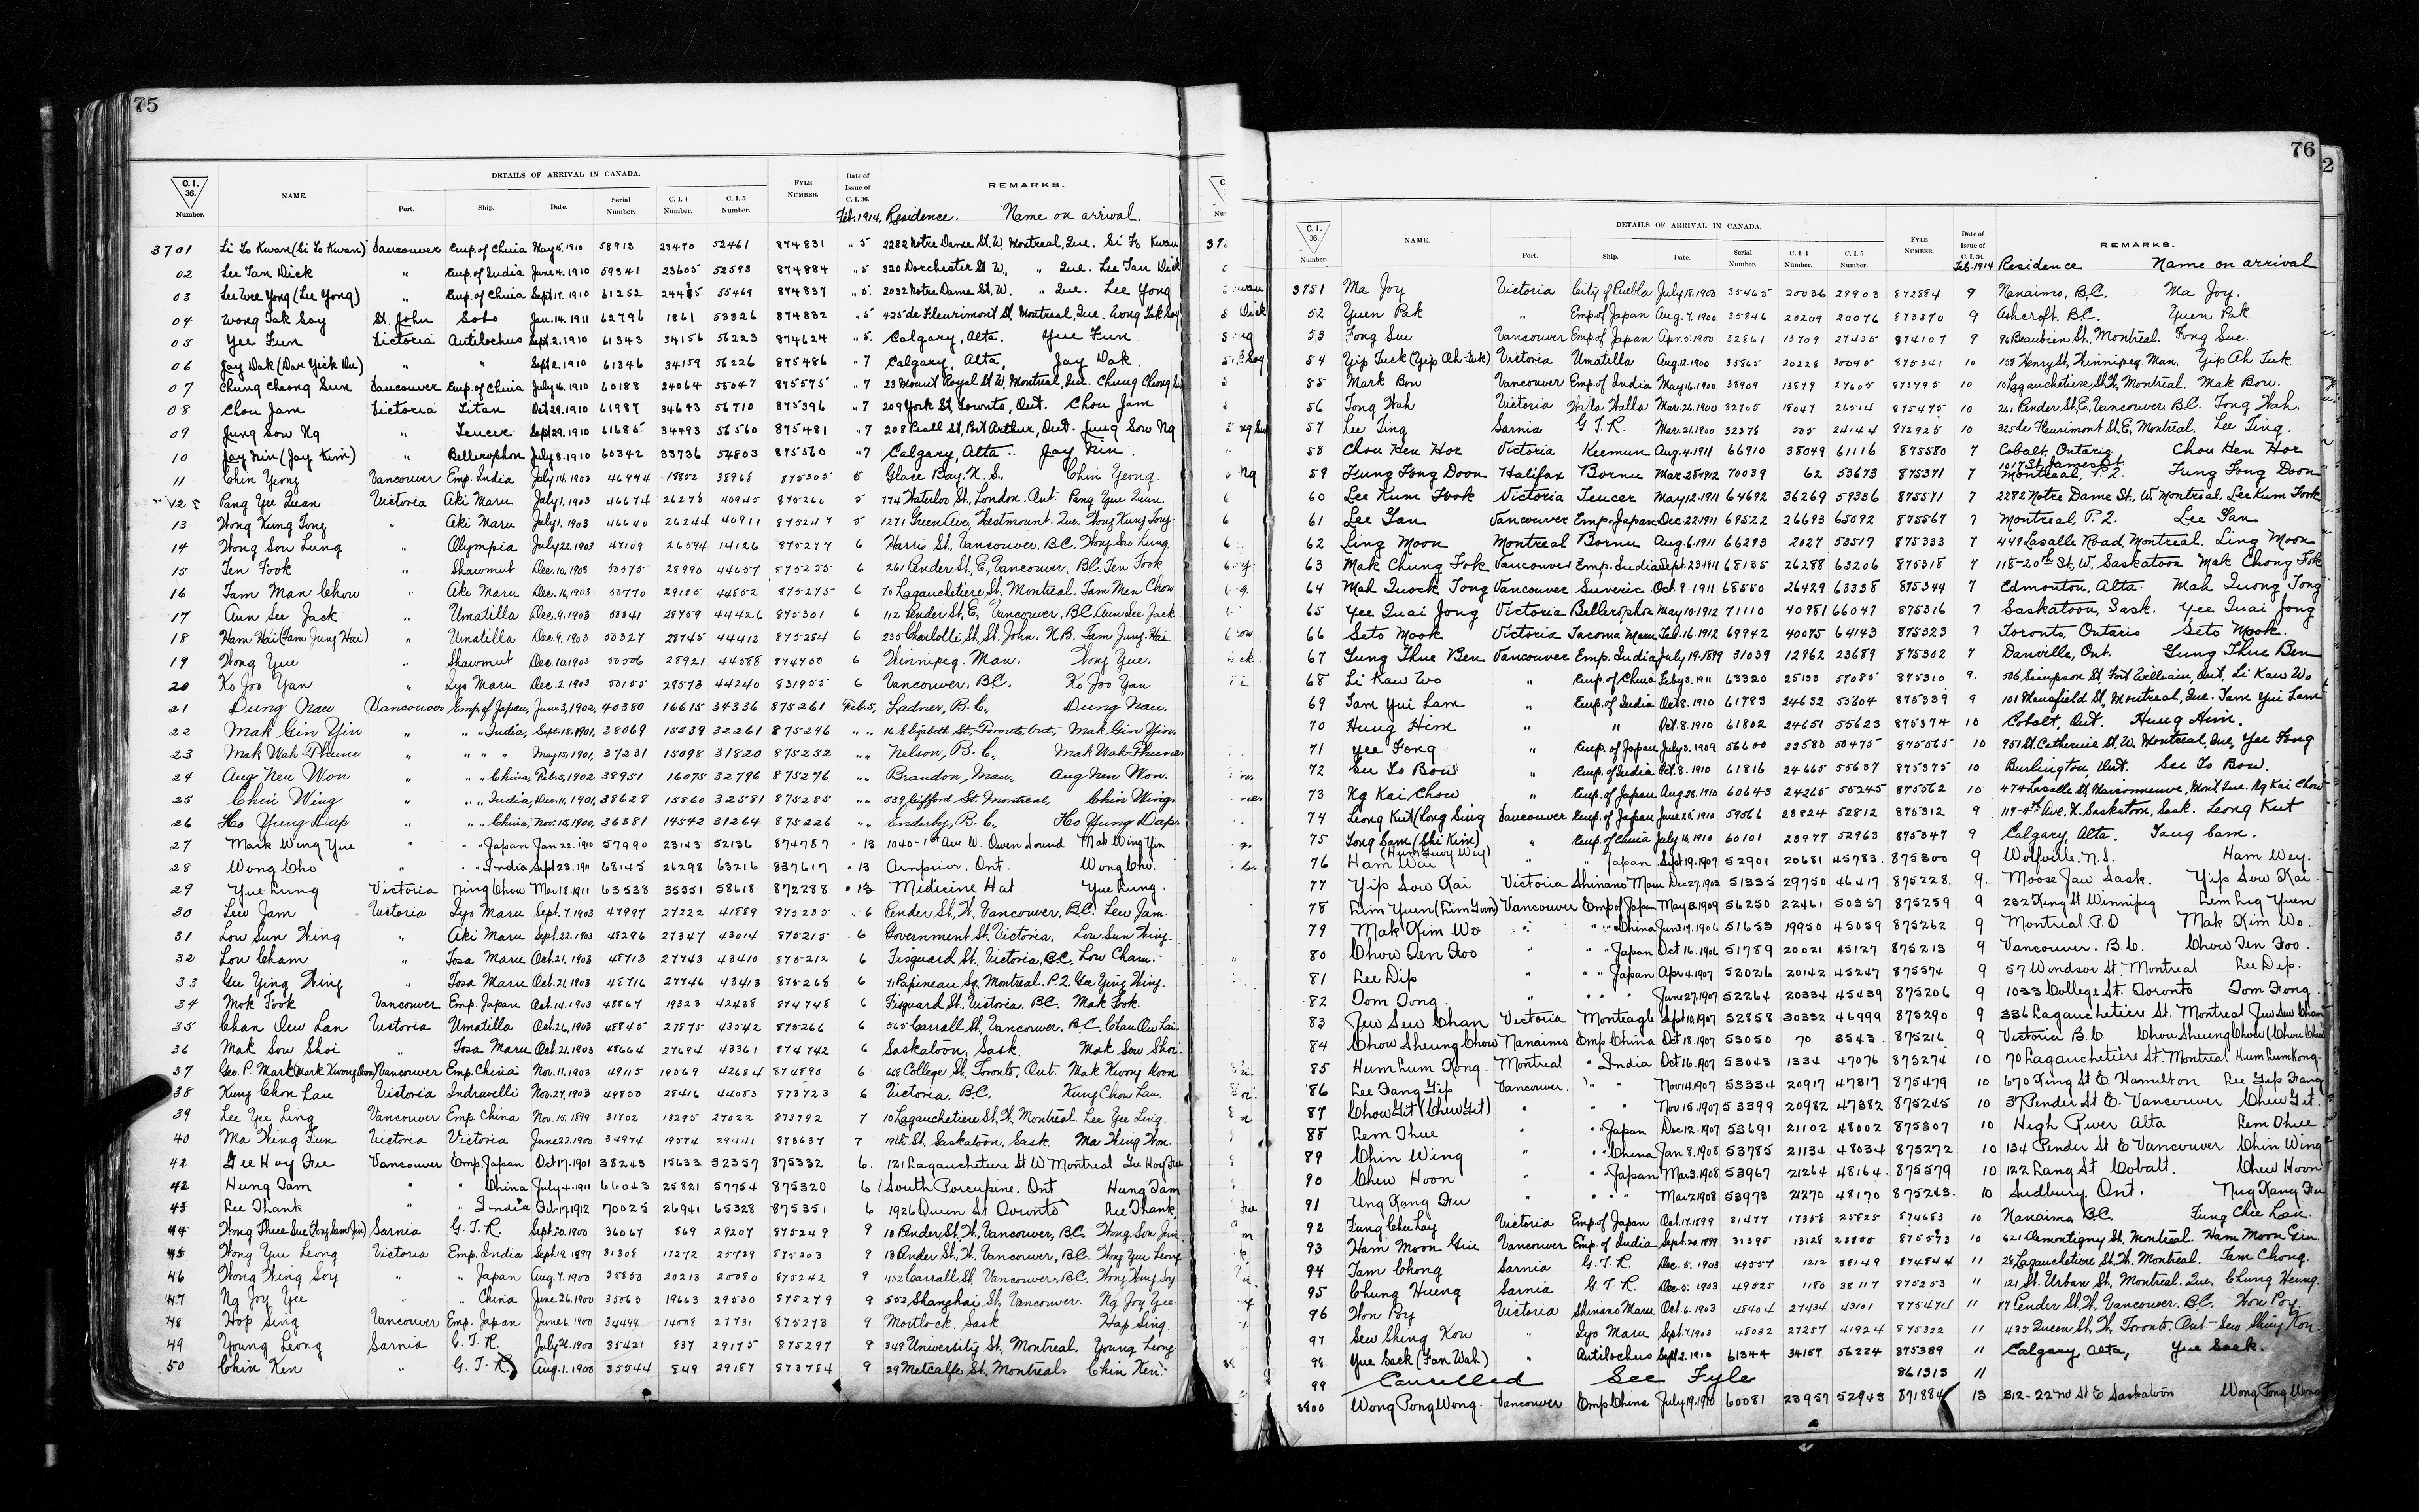 75
C. I. 36. Number. NAME. DETAILS OF ARRIVAL IN CANADA. FYLE NUMBER. Date of Issue of C. I. 36. REMARKS.
Port. Ship. Date. Serial Number. C. I. 4 Number. C. I. 5 Number.
Feb. 1914. Residence. Name on arrival.
3701 Li Lo Kwan (Si Lo Kwan) Vancouver Emp. of China May 15, 1910 58913 23470 52461 874831 " 5 2282 Notre Dame St. W. Montreal, Que. Si Fo Kwan
02 Lee Tan Dick " Emp. of India June 4, 1910 59341 23605 52593 874884 " 5 320 Dorchester St W., " Que. Lee Tan Dick
03 Lee Wee Yong (Lee Yong) " Emp. of China Sept 17, 1910 61252 55469 874837 " 5. 2032 Notre Dame St. W. " Que. Lee Yong
04 Wong Tak Soy St. John Sobo Jan. 14. 1911 62796 1861 53326 874832 " 5 425 de Fleurimont St, Montreal, Que. Wong Tak Soy
05 Yee Fun Victoria Antilochus Sept. 2. 1910 61343 34156 56223 874624 " 5. Calgary, Alta. Yue Fun
06 Jay Dak " " Sept 2. 1910 61346 34159 56226 875486 " 7 Calgary, Alta, Jay Dak
07 Chung Cheong Sun Vancouver Emp. of China July 16. 1910 60188 24064 55047 875575 " 7 23 Mount Royal St W, Montreal, Que. Chung Chong
08 Chou Jam Victoria Titan Oct 29. 1910 61987 34643 56710 875396 " 7 209 York St, Toronto, Ont. Chou Jam
09 Jung Sow Ng " Teucer Sept 29. 1910 61685 34493 56560 875481 " 7 208 Pearl St, Port Arthur, Ont. Jung Sow Ng
10 Jay Nin (Jay Kim) " Bellerophon July 8. 1910 60342 33736 54803 875560 " 7 Calgary, Alta. Jay Nin
11 Chin Yeong Vancouver Emp. India July 14. 1903 46994 18852 38968 875305 5 Glace Bay. N. S. Chin Yeong.
12 Pang Yee Quan Victoria Aki Maru July 1. 1903 46674 26278 40945 875260 5 774 Waterloo St, London. Ont. Pang Yue Quan
13 Wong Kung Tong " Aki Maru July 1. 1903 46640 26244 40911 875247 5 1271 Green Ave, Westmount. Que, Wong Kung Tong.
14 Wong Sou Lung " Olympia July 22. 1903 47109 26594 14126 875277 6 Harris St, Vancouver, B.C. Wong Sou Lung
15 Ten Fook " Shawmut Dec. 10. 1903 50575 28990 44657 875255 6 261 Pender St, E, Vancouver. B.C. Ten Fook
16 Tam Man Chow " Aki Maru Dec. 16, 1903 50770 29185 44852 875275 6 70 Lagauchetiere St, Montreal. Tam Men Chow
17 Aun See Jack " Umatilla Dec. 9. 1903 50341 28759 44426 875301 6 112 Pender St, E, Vancouver, B.C. Aun See Jack
18 Ham Hai (Tam Jung Hai) " Umatilla Dec. 9. 1903 50327 28745 44412 875284 6 235 Charlotte St, St. John. N.B. Tam Jung Hai
19 Wong Yue " Shawmut Dec. 10. 1903 50506 28921 44588 874700 6 Winnipeg. Man. Wong Yue.
20 Ko Joo Yan " Iyo Maru Dec. 2. 1903 50155 28573 44240 831955 6 Vancouver, B.C. Ko Joo Yan
21 Dung Nau Vancouver Emp. of Japan, June 3, 1902, 40380 16615 34336 875261 Feb. 5, Ladner, B. C., Dung Nau.
22 Mak Gin Yin " " " India, Sept. 18, 1901, 38069 15539 32261 875246 " " 16 Elizabeth St., Toronto, Ont., Mak Gin Yin.
23 Mak Wah Thune " " " " May 15, 1901, 37231 15098 31820 875252 " " Nelson, B. C., Mak Wah Thune
24 Aug Neu Won " " " China, Feb. 5, 1902 38951 16075 32796 875276 " " Brandon, Man., Aug Neu Won.
25 Chin Wing " " " India, Dec. 11, 1901, 38628 15860 32581 875285 " " 539 Gifford St. Montreal, Chin Wing.
26 Ho Yung Dap " " " China, Nov. 15, 1900, 36381 14542 31264 875226 " " Enderby, B. C., Ho Yung Dap.
27 Mark Wing Yue " " " Japan Jan 22. 1910 57990 23143 52136 874787 " 13 1040 - 1st Ave W. Owen Sound Mak Wing Yin
28 Wong Cho " " " India Sept 23. 1911 68145 26298 63216 837617 " 13 Arnprior, Ont. Wong Cho.
29 Yue Lung Victoria Ning Chow Mar 18. 1911 63538 35551 58618 872288 " 13 Medicine Hat Yue Lung.
30 Lew Jam Victoria Iyo Maru Sept. 7. 1903 47997 27222 41889 875235 " 6 Pender St, W, Vancouver, B.C. Lew Jam.
31 Lou Sun Wing " Aki Maru Sept. 22. 1903 48296 27347 43014 875215 . 6 Government St. Victoria. Lou Sun Wing.
32 Lou Cham " Tosa Maru Oct. 21. 1903 48713 27743 43410 875212 6 Fisguard St. Victoria, B.C. Low Cham.
33 Gee Ying Wing " Tosa Maru Oct. 21, 1903 48716 27746 43413 875268 6 71 Papineau Sq. Montreal. P.Q. Gee Ying Wing.
34 Mok Fook Vancouver Emp. Japan Oct. 14. 1903 48867 19323 42438 874748 6 Fisguard St. Victoria. B.C. Mak Fook.
35 Chan Oew Lan Victoria Umatilla Oct. 26, 1903 48845 27875 43542 875266 6 565 Carrall St, Vancouver. B.C. Chan Ow Lai.
36 Mak Sou Shoi " Tosa Maru Oct. 21. 1903 48664 27694 43361 874742 6 Saskatoon, Sask. Mak Sow Shoi.
37 Geo. P. Mark (Mark Kwong Noon) Vancouver Emp. China Nov. 11, 1903 49115 19569 42684 874890 6 648 College St, Toronto, Ont. Mak Kwong Noon
38 Kung Chou Lau Victoria Indravelli Nov. 27, 1903 49850 28416 44083 873723 6 Victoria, B.C. Kung Chow Lau.
39 Lee Yee Ling Vancouver Emp China Nov. 15. 1899 31702 13295 27022 873792 7 10 Lagauchetiere St, W. Montreal. Lee Yee Ling.
40 Ma Wing Fun Victoria Victoria June 22. 1900 34974 19574 29441 873637 7 19th St, Saskatoon, Sask. Ma Wing Won.
42 Gee Hoy Fee Vancouver Emp Japan Oct 17. 1901 38243 15633 32357 875332 6. 121 Lagauchetiere St W Montreal Gee Hoy Fee
42 Hung Tam " " China July 4. 1911 66043 25821 57754 875320 6 South Porcupine. Ont Hung Tam
43 Lee Thank " " India Feb 17, 1912 70025 26941 65328 875351 6 1926 Queen St Toronto Lee Thank
44 Wong Thee Sue (Wong Sam Jin) Sarnia G. T. R. Sept. 20. 1900 36067 869 29207 875249 9 18 Pender St, W, Vancouver, B.C. Wong Son Jin.
45 Wong Yue Leong Victoria Emp. India Sept. 19. 1899 31308 17272 25739 875303 9 13 Pender St, W. Vancouver, B.C. Wong Yue Leong
46 Wong Wing Soy " " Japan Aug. 7. 1900 35850 20213 20080 875242 9 432 Carrall St, Vancouver, B.C. Wong Wing Soy
47 Ng Joy Yee " " China June 26. 1900 35063 19663 29530 875279 9 552 Shanghai St, Vancouver. Ng Joy Yee
48 Hop Sing Vancouver Emp. Japan June 6. 1900 34499 14008 27731 875273 9 Mortlock. Sask Hap Sing.
49 Young Leong Sarnia G. T. R. July 26. 1900 35421 837 29175 875297 9 349 University St. Montreal. Young Leong
50 Chin Ken " G. T. R. Aug. 1. 1900 35544 849 29187 873784 9 29 Metcalfe St, Montreal. Chin Ken.
76
C. I. 36. Number. NAME. DETAILS OF ARRIVAL IN CANADA. FYLE NUMBER. Date of Issue of C. I. 36. REMARKS.
Port. Ship. Date. Serial Number. C. I. 4 Number. C. I. 5 Number.
Feb. 1914 Residence Name on arrival
3751 Ma Joy Victoria City of Puebla July 18. 1900 35465 20036 29903 872884 9 Nanaimo, B.C. Ma Joy.
52 Yuen Pak " Emp of Japan Aug. 7. 1900 35846 20209 20076 873270 9 Ashcroft. B.C. Yuen Pak.
53 Fong Sue Vancouver Emp of Japan Apr. 5. 1900 32861 13709 27435 874107 9 96 Beaubien St, Montreal. Fong Sue.
54 Yip Tuck (Yip Ah Tuk) Victoria Umatilla Aug. 12. 1900 35865 20228 30095 875341 10 158 Henry St, Winnipeg. Man. Yip Ah Tuk
55 Mark Bow Vancouver Emp. of India May 16. 1900 33909 13879 27605 873795 10 10 Lagauchetiere St, W, Montreal. Mak Bow.
56 Tong Wah Victoria Walla Walla Mar. 26. 1900 32705 18047 26514 875475 10 261 Pender St, E, Vancouver. B.C. Tong Wah.
57 Lee Ting Sarnia G. T. R. Mar. 21. 1900 32376 505 24144 872925 10 325 de Fleurimont St. E, Montreal. Lee Ting.
58 Chou Hen Hor Victoria Keemun Aug. 4. 1911 66910 38049 61116 875580 7 Cobalt, Ontario Chou Hen Hor
59 Fung Fong Doon Halifax Bornu Mar. 28. 1912 70039 62 53673 875371 7 1017 St. James St. Montreal, P.Q. Fung Fong Doon
60 Lee Kum Fook Victoria Teucer May 12. 1911 64692 36269 59336 875571 7 2282 Notre Dame St. W. Montreal. Lee Kum Fook
61 Lee Gan Vancouver Emp. Japan Dec. 22. 1911 69522 26693 65092 875567 7 Montreal, P.Q. Lee Gan
62 Ling Moon Montreal Bornu Aug. 6. 1911 66293 2027 53517 875333 7 449 Lasalle Road, Montreal. Ling Moon
63 Mak Chung Fok Vancouver Emp. India Sept. 23. 1911 68135 26288 63206 875318 7 118-20th St, W. Saskatoon Mak Chong Fok
64 Mah Quock Tong Vancouver Suveric Oct. 9. 1911 68550 26429 63338 875344 7 Edmonton, Alta. Mah Quong Tong
65 Yee Quai Jong Victoria Bellerophon May 10. 1912 71110 40981 66047 875316 7 Saskatoon, Sask. Yee Quai Jong
66 Seto Mook Victoria Tacoma Maru Feb. 16. 1912 69942 40075 64143 875323 7 Toronto, Ontario Seto Mook.
67 Gung Thue Ben Vancouver Emp. India July 19. 1899 31039 12962 23689 875302 7 Danville, Ont. Gung Thue Ben
68 Li Kaw Wo " Emp. of China Feby 3. 1911 63320 25133 57085 875310 9. 506 Simpson St, Fort William, Ont, Li Kaw Wo
69 Tam Yui Lam " Emp. of India Oct 8. 1910 61783 24632 55604 875339 9 101 Mansfield St, Montreal, Que. Tam Yui Lam
70 Hung Him " " Oct. 8. 1910 61802 24651 55623 875374 10 Cobalt, Ont. Hung Him.
71 Yee Fong " Emp. of Japan July 3. 1909 56600 22580 50475 875565 10 951 St. Catherine St. W. Montreal, Que, Yee Fong
72 See To Bow " Emp. of India Oct. 8. 1910 61816 24665 55637 875375 10 Burlington, Ont. See To Bow.
73 Ng Kai Chow " Emp. of Japan Aug 28. 1910 60643 24265 55245 875562 10 474 Lasalle St Maisonneuve, Mont Que. Ng Kai Chow
74 Leong Kut (Long Sing) Vancouver Emp. of Japan June 25, 1910 59566 23824 52812 875312 9 117-4th Ave. N. Saskatoon, Sask. Leong Kut
75 Tong Sam (Chi Kim) " Emp. of China July 16. 1910 60101 23977 52963 875347 9 Calgary, Alta. Tong Sam.
76 Ham Wai (Hum Suey Wey) " " Japan Sept. 19. 1907 52901 20681 45783. 875300 9 Wolfville. N.S. Ham Wey.
77 Yip Sow Kai Victoria Shinano Maru Dec 27, 1903 51335 29750 46417 875228 9. Moose Jaw Sask. Yip Sow Kai
78 Lim Yuen (Lim Goon) Vancouver Emp of Japan May 3. 1909 56250 22461 50357 875259 9 232 King St Winnipeg Lem Leg Yuen
79 Mak Kim Wo " " " China June 19. 1906 51653 19950 45059 875262 9 Montreal P.Q Mak Kim Wo.
80 Chow Ten Foo " " " Japan Oct 16. 1906 51789 20021 45127 875213 9 Vancouver. B.C. Chow Ten Foo.
81 Lee Dip " " " Japan Apr 4. 1907 52026 20142 45247 875574 9 57 Windsor St. Montreal Lee Dip.
82 Tom Tong " " " " June 27, 1907 52264 20334 45439 875206 9 1033 College St. Toronto Tom Tong.
83 Jew Sew Chan Victoria Monteagle Sept 10, 1907 52858 30332 46999 875290 9 336 Lagauchetiere St. Montreal Jew Sew Chan
84 Chow Sheung Chow Nanaimo Emp China Oct 18. 1907 53050 70 3543. 875216 9 Victoria B.C. Chow Sheung Chow (Chow Chow
85 Hum Lum Kong. Montreal " India Oct 16. 1907 53043 1334 47076 873274 10 70 Lagauchetiere St. Montreal Hum Lum Kong.
86 Lee Fang Yip Vancouver. " " Nov 14. 1907 53334 20917 47317 875479 10 670 King St E Hamilton Lee Yip Fang
87 Chow Git (Chew Get) " " " Nov 15. 1907 53399 20982 47382 875245 10 37 Pender St E. Vancouver Chew Get.
88 Lem Thue " " Japan Dec 12. 1907 53691 21102 48002 875307 10 High River Alta Lem Thue.
89 Chin Wing " " China Jan 8. 1908 53785 21134 48034 875272 10 134 Pender St E Vancouver Chin Wing
90 Chew Hoon " " Japan Mar 3. 1908 53967 21264 48164. 875579 10 122 Lang St Cobalt. Chew Hoon
91 Ung Kang Fu " " " Mar 2. 1908 53973 21270 48170 875243. 10 Sudbury Ont. Nug Kang Fu
92 Fung Chee Lay Victoria Emp of Japan Oct. 17. 1899 31477 17358 25825 874683 10 Nanaimo B.C. Fung Chee Lau.
93 Ham Moon Giu Vancouver Emp. of India Sept. 20. 1899 31395 13128 875573 10 621 Demontigny St, Montreal. Ham Moon Giu.
94 Tam Chong Sarnia G. T. R. Dec. 5. 1903 49557 1212 38149 874844 11 28 Lagauchetiere St. W. Montreal. Tam Chong.
95 Chung Hueng Sarnia G. T. R. Dec. 5. 1903 49525 1180 38117 875253 11 121 St. Urban St, Montreal. Que, Chung Heung.
96 Won Poy Victoria Shinano Maru Oct. 6. 1903 48404 27434 43101 875474 11 87 Pender St, W. Vancouver. B.C. Won Poy.
97 Sew Ching Kow " Iyo Maru Sept. 7. 1903 48032 27257 41924 875322 11 435 Queen St, W, Toronto, Ont. Sew Shing Kow.
98 Yue Sack (Fan Wah) " Antilochus Sept 2. 1910 61344 34157 56224 875389 11 Calgary, Alta, Yue Sack.
99 Cancelled See Fyle 861313 11
3800 Wong Pong Wong. Vancouver Emp China July 19. 1910 60081 23957 52943 871884 13 312-22nd St E Saskatoon Wong Fong Wong